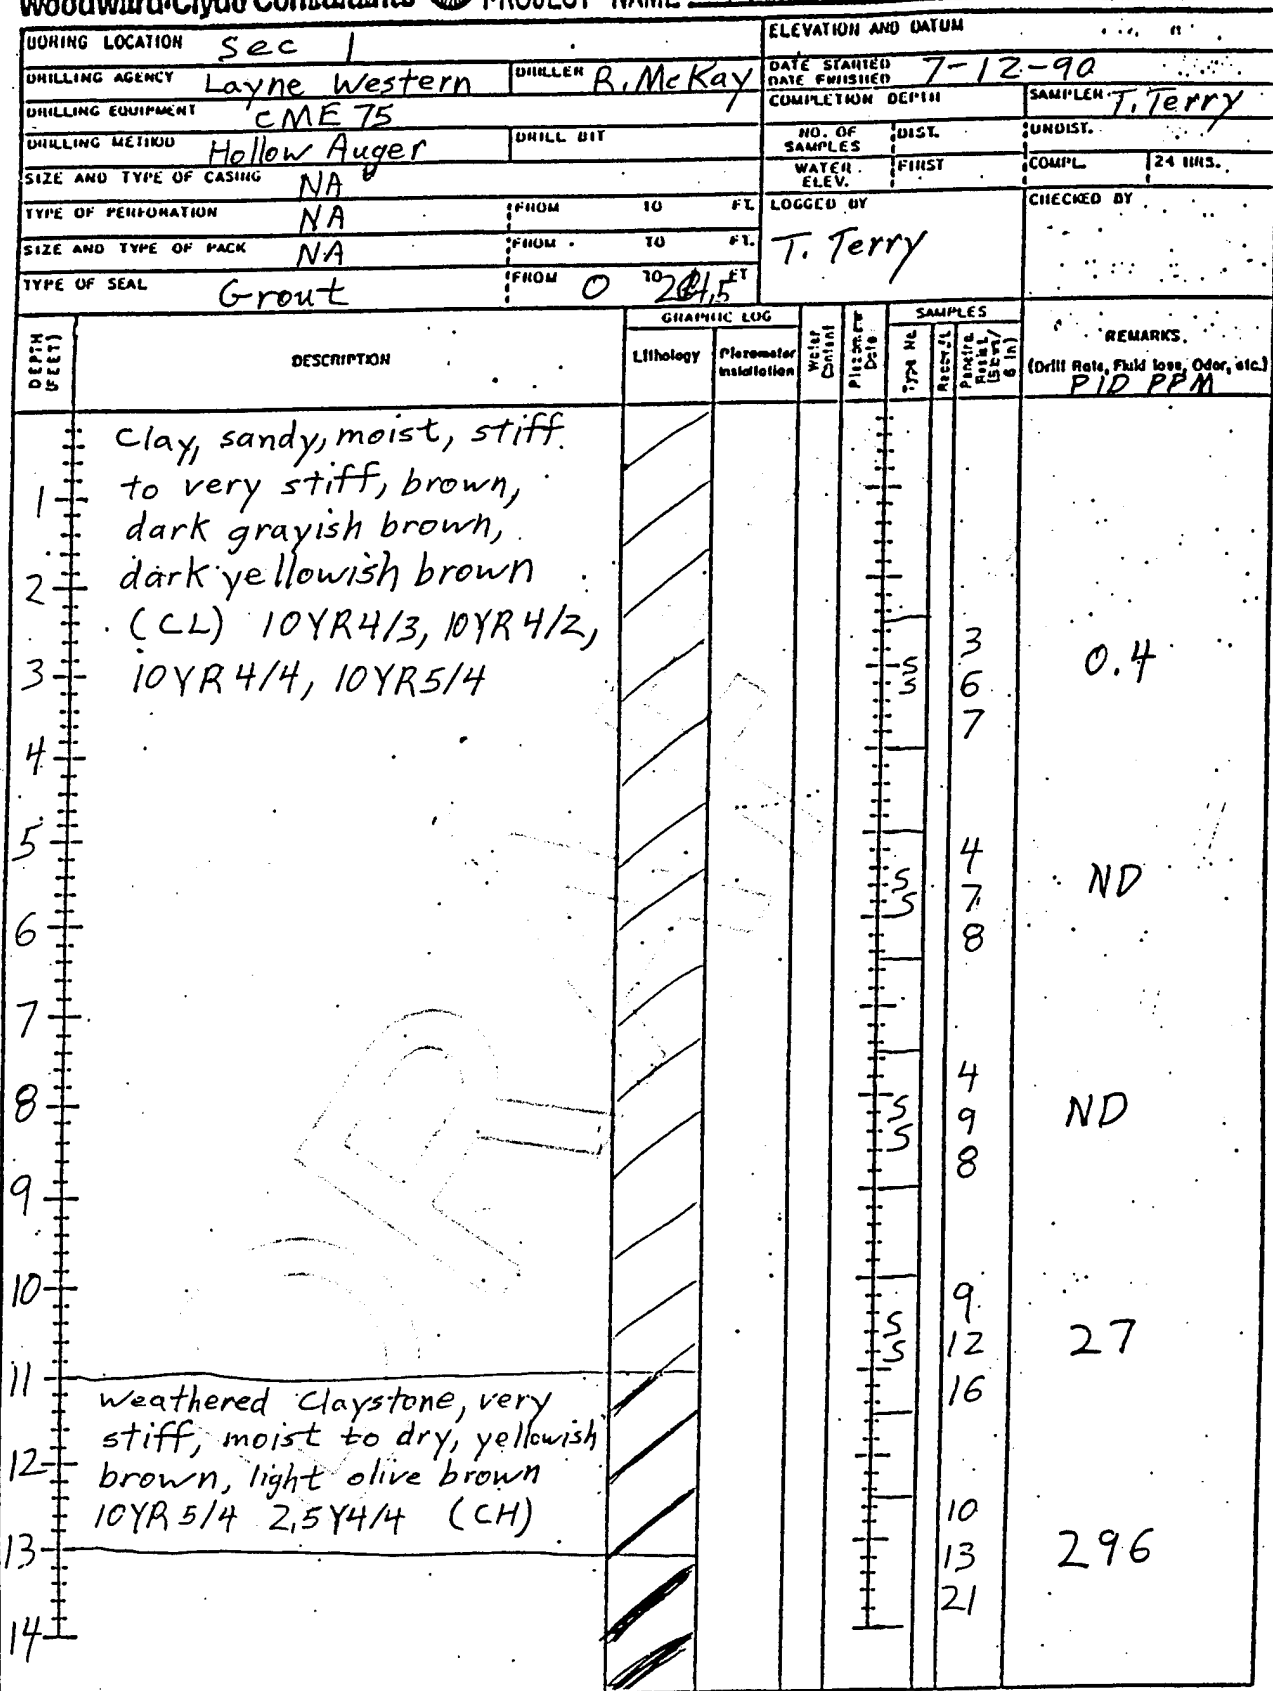 Woodward-Clyde Consultants PROJECT NAME
BORING LOCATION Sec 1
ELEVATION AND DATUM
DRILLING AGENCY Layne Western DRILLER R. McKay
DATE STARTED 7-12-90
DATE FINISHED
DRILLING EQUIPMENT CME 75
COMPLETION DEPTH SAMPLER T. Terry
DRILLING METHOD Hollow Auger DRILL BIT
NO. OF SAMPLES DIST. UNDIST.
SIZE AND TYPE OF CASING NA
WATER ELEV. FIRST COMPL. 24 HRS.
TYPE OF PERFORATION NA FROM TO FT.
LOGGED BY T. Terry CHECKED BY
SIZE AND TYPE OF PACK NA FROM TO FT.
TYPE OF SEAL Grout FROM 0 TO FT
DEPTH (FEET)
DESCRIPTION
GRAPHIC LOG
Lithology
Piezometer Installation
Water Content
SAMPLES
Type No.
REMARKS.
(Drill Rate, Fluid loss, Odor, etc.)
PID PPM
Clay, sandy, moist, stiff
1 to very stiff, brown,
dark grayish brown,
2 dark yellowish brown
(CL) 10YR4/3, 10YR4/2,
3 10YR4/4, 10YR5/4
SS 3 6 7 0.4
4
5
SS 4 7 8 ND
6
7
8
SS 4 9 8 ND
9
10
SS 9 12 16 27
11
Weathered Claystone, very
stiff, moist to dry, yellowish
12 brown, light olive brown
10YR5/4 2.5Y4/4 (CH)
13
10 13 21 296
14